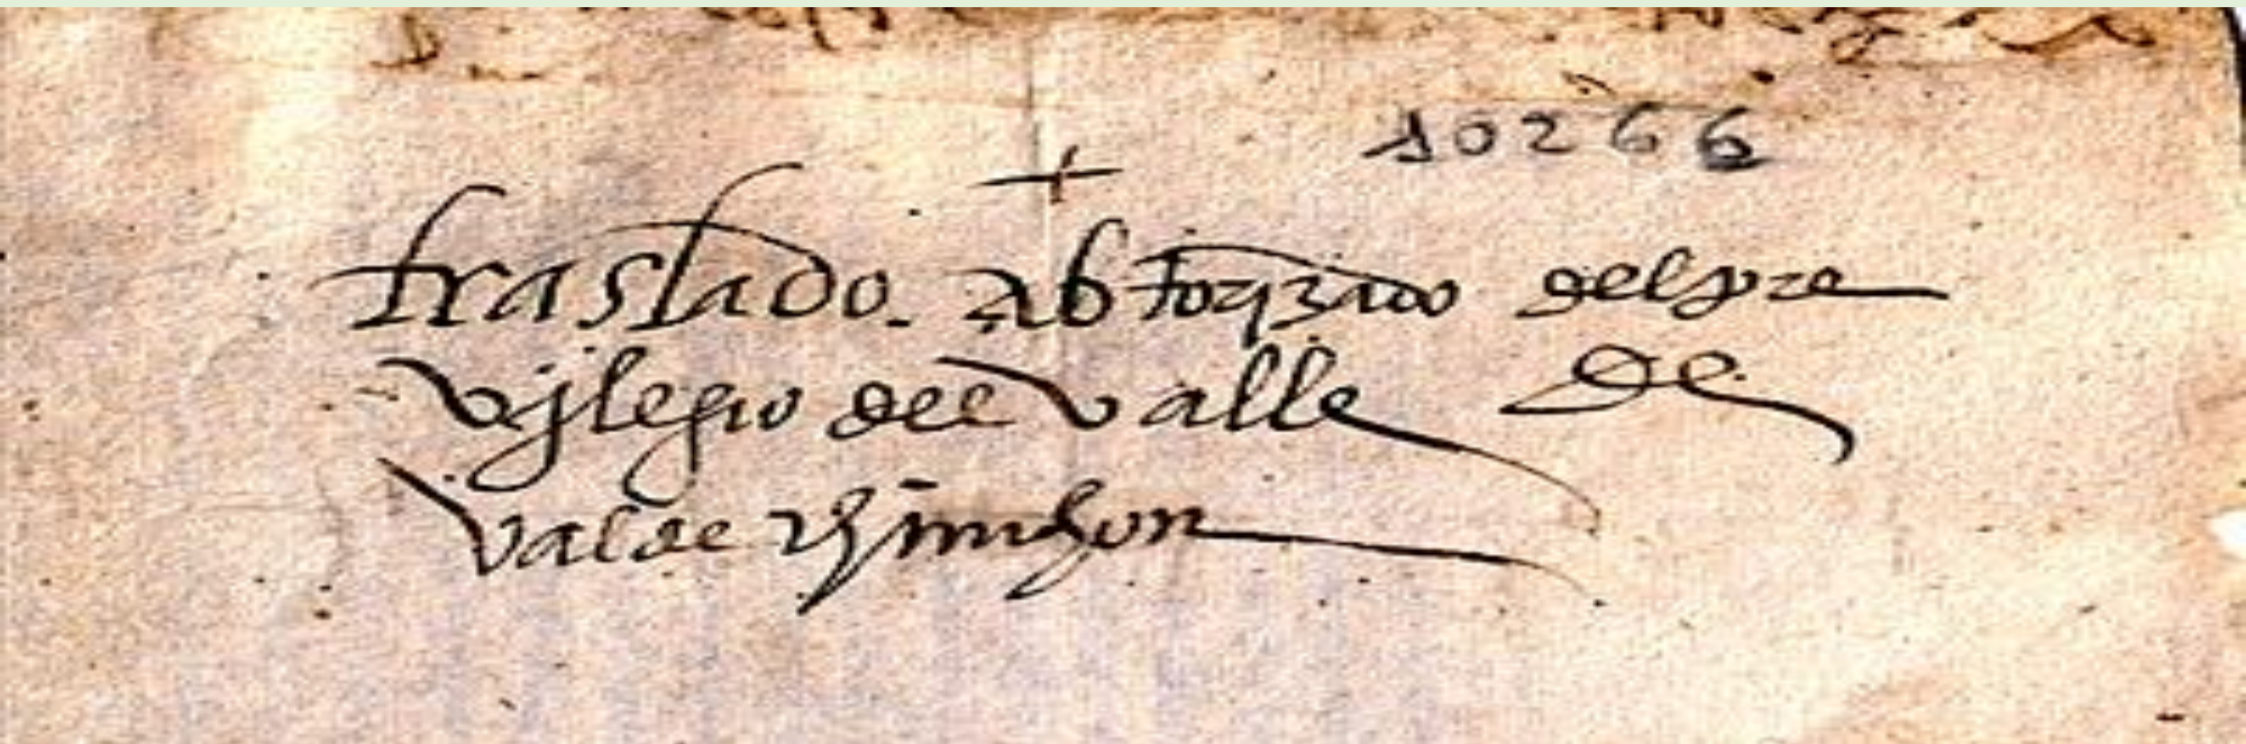 10266
+
traslado abtorizado del pre
vjlegio del Valle de
Valde